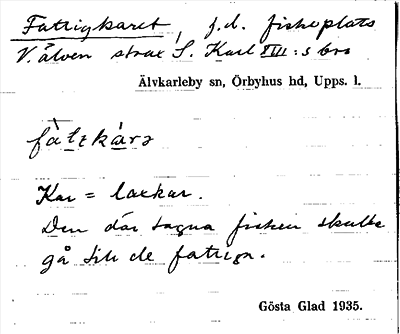 Fattigkaret, f.d. fiskeplats
V. älven strax S. Karl XIII:s bro
Älvkarleby sn, Örbyhus hd, Upps. l.
fàtɩkárə
Kar = laxkar.
Den där tagna fisken skulle
gå till de fattiga.
Gösta Glad 1935.